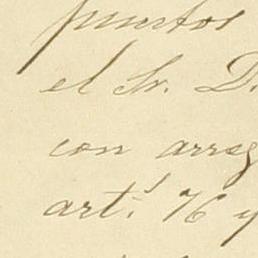 puntos
el Sr. D.
con arreg
art.s 76 y